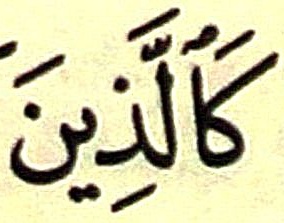 كَٱلَّذِينَ